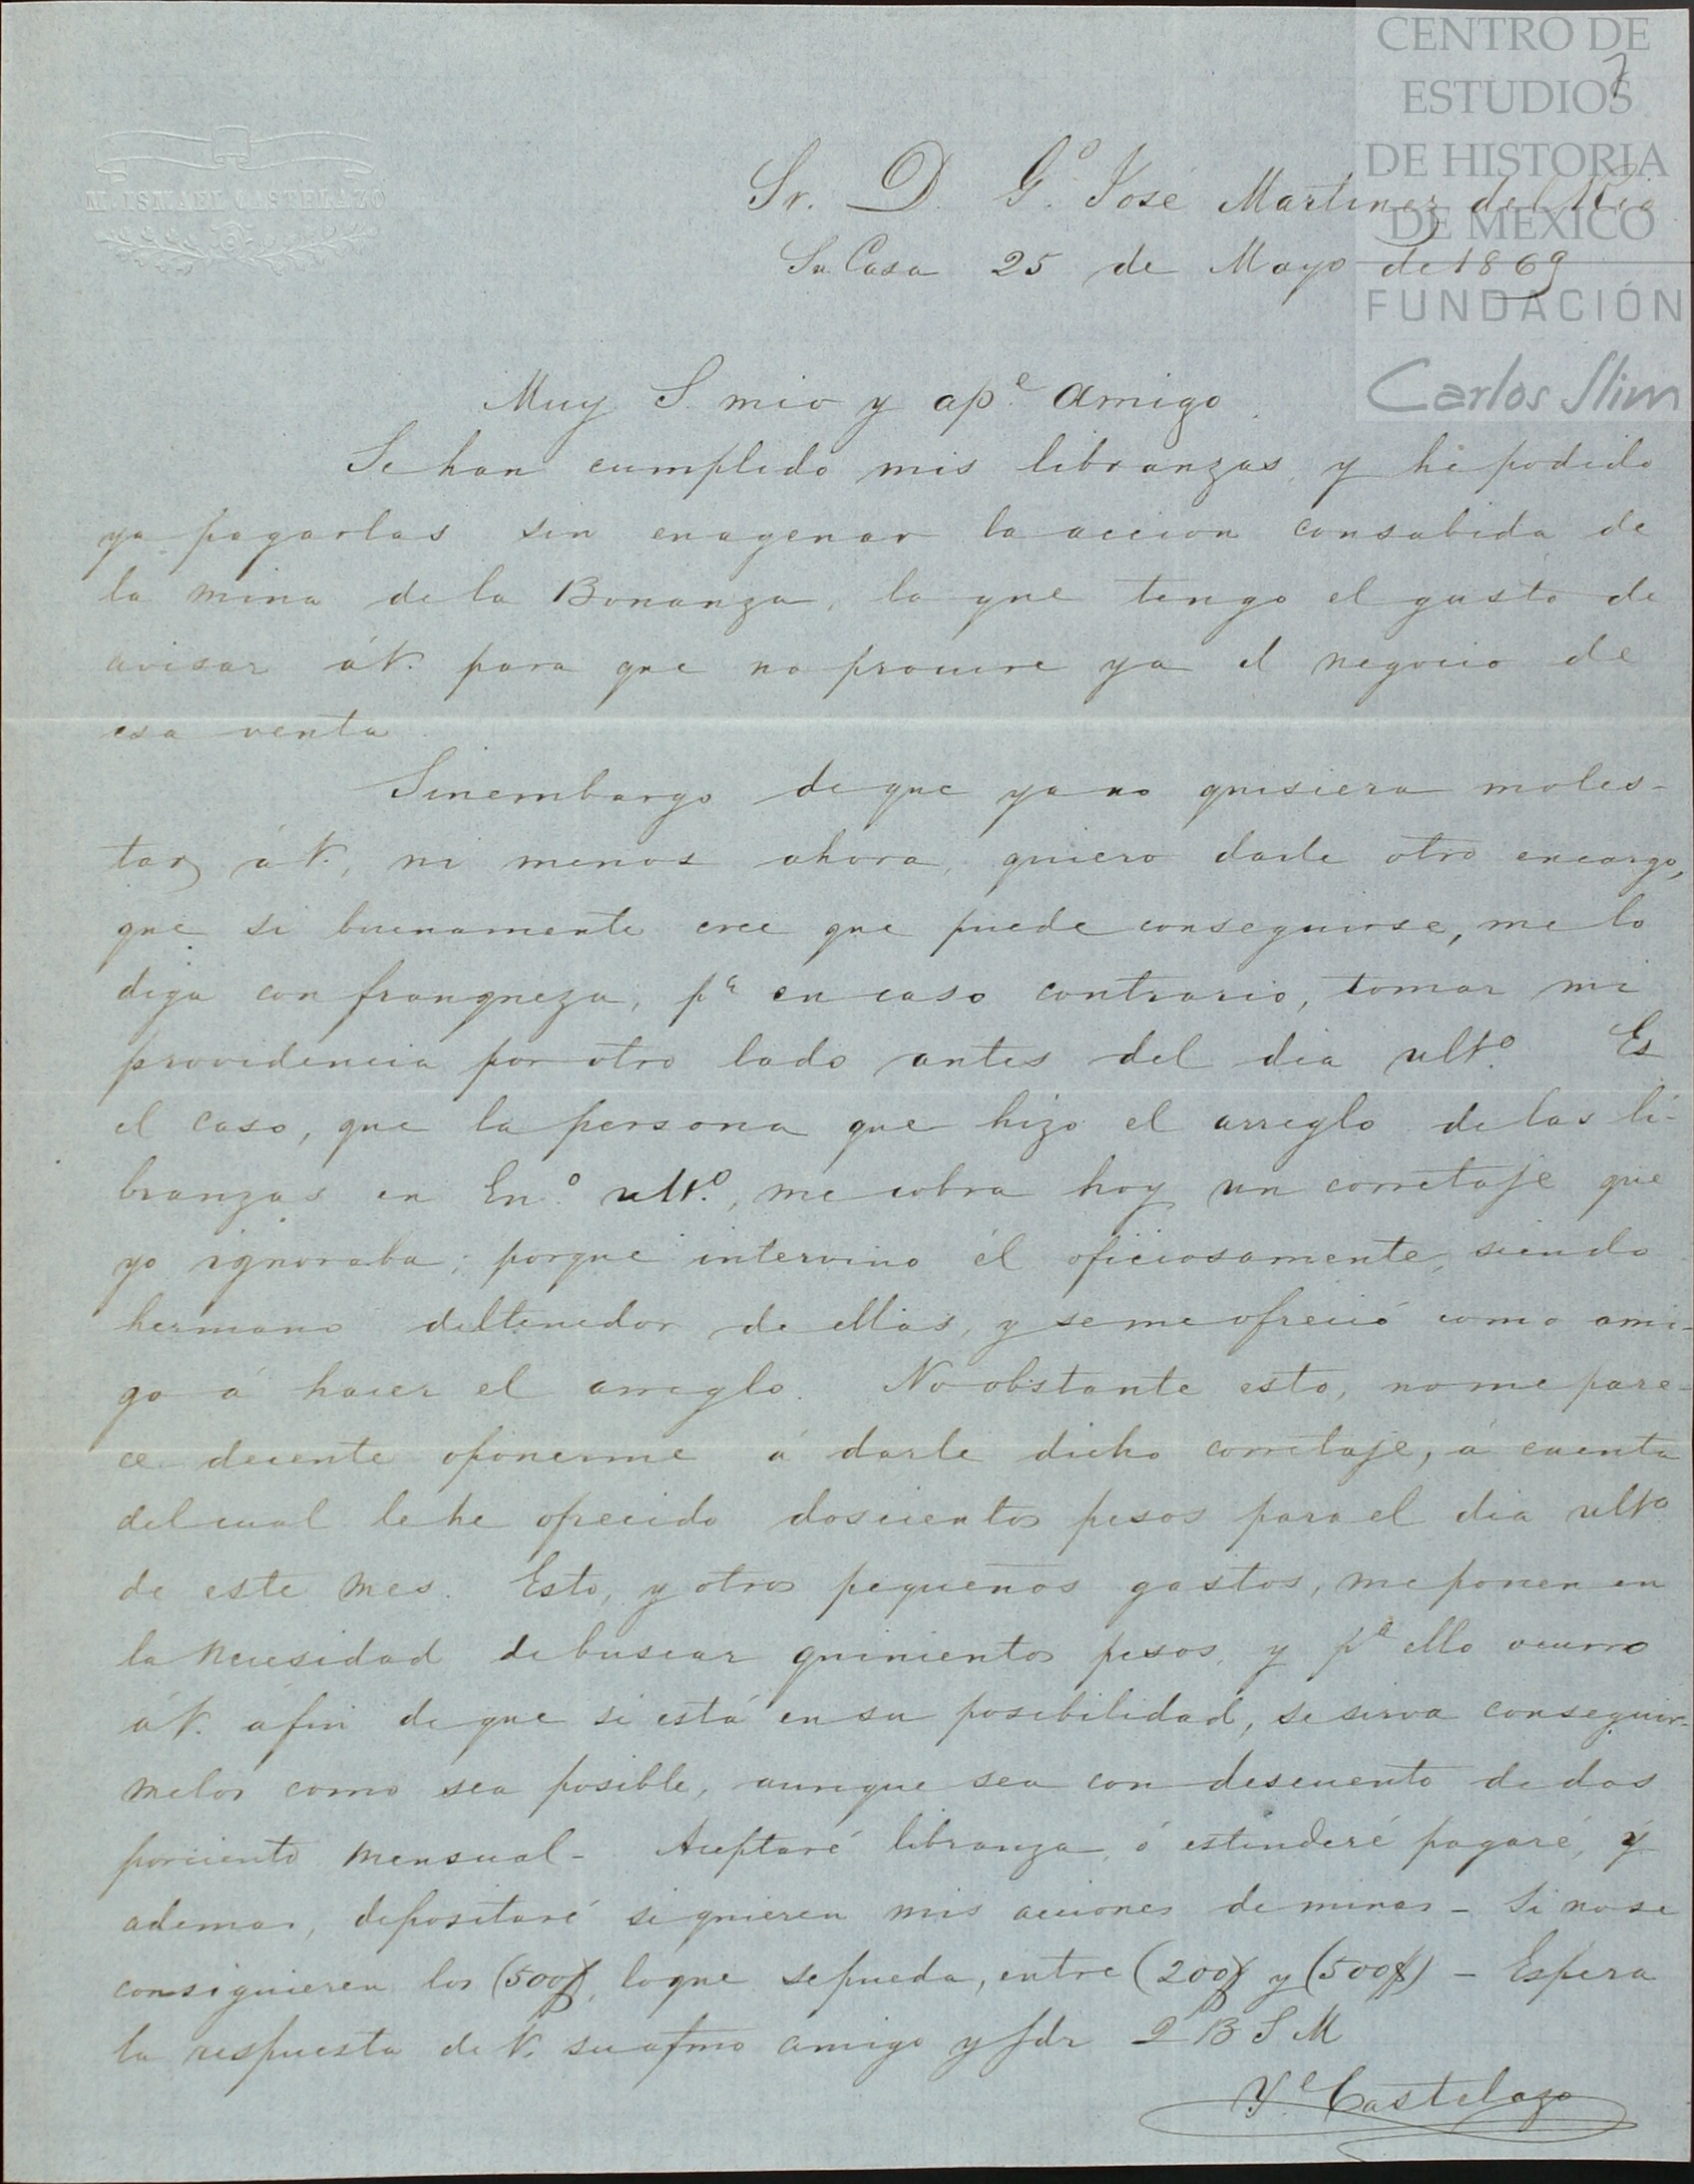 CENTRO DE
ESTUDIOS
DE HISTORIA
DE MEXICO
FUNDACIÓN
Carlos Slim
7
M. ISMAEL CASTELAZO
Sr. D. G.º José Martinez del Rio
Su Casa 25 de Mayo de 1869
Muy S. mio y ap.e amigo.
Se han cumplido mis libranzas, y he podido
ya pagarlas sin enagenar la accion consabida de
la mina de la Bonanza, lo que tengo el gusto de
avisar á V. para que no procure ya el negocio de
esa venta.
Sinembargo de que ya no quisiera moles-
tar á V., ni menos ahora, quiero darle otro encargo,
que si buenamente cree que puede conseguirse, me lo
diga con franqueza, pª en caso contrario, tomar mi
providencia por otro lado antes del dia ultº. Es
el caso, que la persona que hizo el arreglo de las li-
branzas en En.º ult.º, me cobra hoy un corretaje que
yo ignoraba; porque intervino él oficiosamente, siendo
hermano del tenedor de ellas, y se me ofreció como ami-
go á hacer el arreglo. No obstante esto, no me pare-
ce decente oponerme á darle dicho corretaje, á cuenta
del cual le he ofrecido doscientos pesos para el dia ultº
de este mes. Esto, y otros pequeños gastos, me ponen en
la necesidad de buscar quinientos pesos, y pª ello ocurro
á V. á fin de que si está en su posibilidad, se sirva conseguir-
melos como sea posible, aunque sea con descuento de dos
porciento mensual - Aceptaré libranza, ó estenderé pagaré, y
ademas, depositaré si quieren mis acciones de minas - Si no se
consiguieren los (500$), lo que se pueda, entre (200$) y (500$) - Espera
la respuesta de V. su afmo amigo y sdr Q B S M
Y.l Castelazo